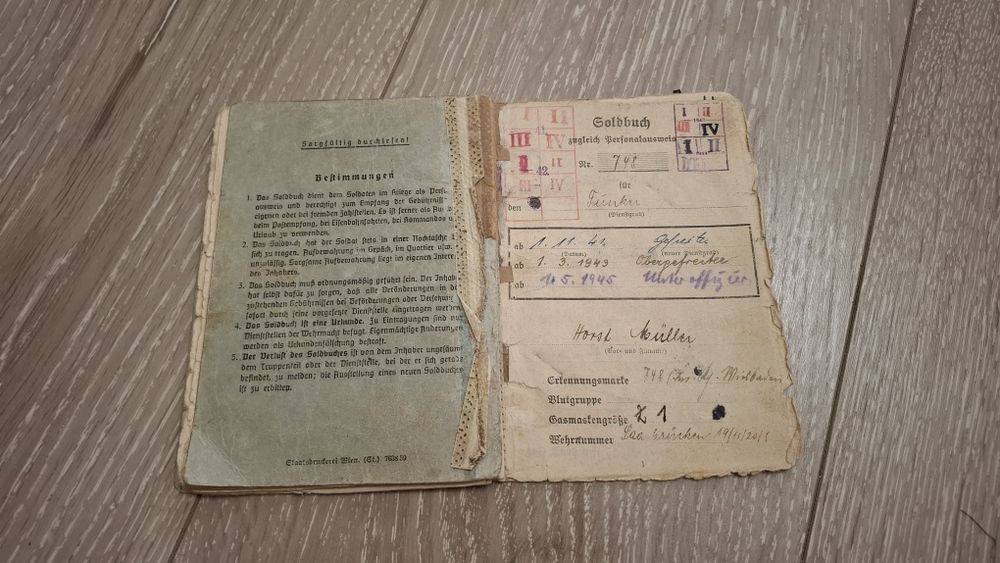 Sorgfältig durchlesen!
Bestimmungen
1. Das Soldbuch dient dem Soldaten im Kriege als Perso
ausweis und berechtigt zum Empfang der Gebührniss
eigenen oder bei fremden Zahlstellen. Es ist ferner als Aus
beim Postempfang, bei Eisenbahnfahrten, bei Kommandos u
Urlaub zu verwenden.
2. Das Soldbuch hat der Soldat stets in einer Rocktasche
sich zu tragen. Aufbewahrung im Gepäck, im Quartier usw.
unzulässig. Sorgsame Aufbewahrung liegt im eigenen Intere
des Inhabers.
3. Das Soldbuch muß ordnungsmäßig geführt sein. Der Inhab
hat selbst dafür zu sorgen, daß alle Veränderungen in de
zustehenden Gebührnissen bei Beförderungen oder Versetzun
sofort durch seine vorgesetzte Dienststelle eingetragen werde
4. Das Soldbuch ist eine Urkunde. Zu Eintragungen sind nu
Dienststellen der Wehrmacht befugt. Eigenmächtige Änderungen
werden als Urkundenfälschung bestraft.
5. Der Verlust des Soldbuches ist von dem Inhaber ungesäum
dem Truppenteil oder der Dienststelle, bei der er sich gerade
befindet, zu melden; die Ausstellung eines neuen Soldbuches
ist zu erbitten.
Staatsdruckerei Wien. (St.) 7638 39
I II
41.
III IV
II
42.
III IV
Soldbuch
zugleich Personalausweis
Nr. 748
für
den Funker
(Dienstgrad)
I II
III IV
I II
ab 1. 11. 41 Gefreiter
(Datum) (neuer Dienstgrad)
ab 1. 3. 1943 Obergefreiter
ab 1. 5. 1945 Unteroffizier
Horst Müller
(Vor- und Zuname)
Erkennungsmarke 748 Wiesbaden
Blutgruppe
Gasmaskengröße Z 1
Wehrnummer
1